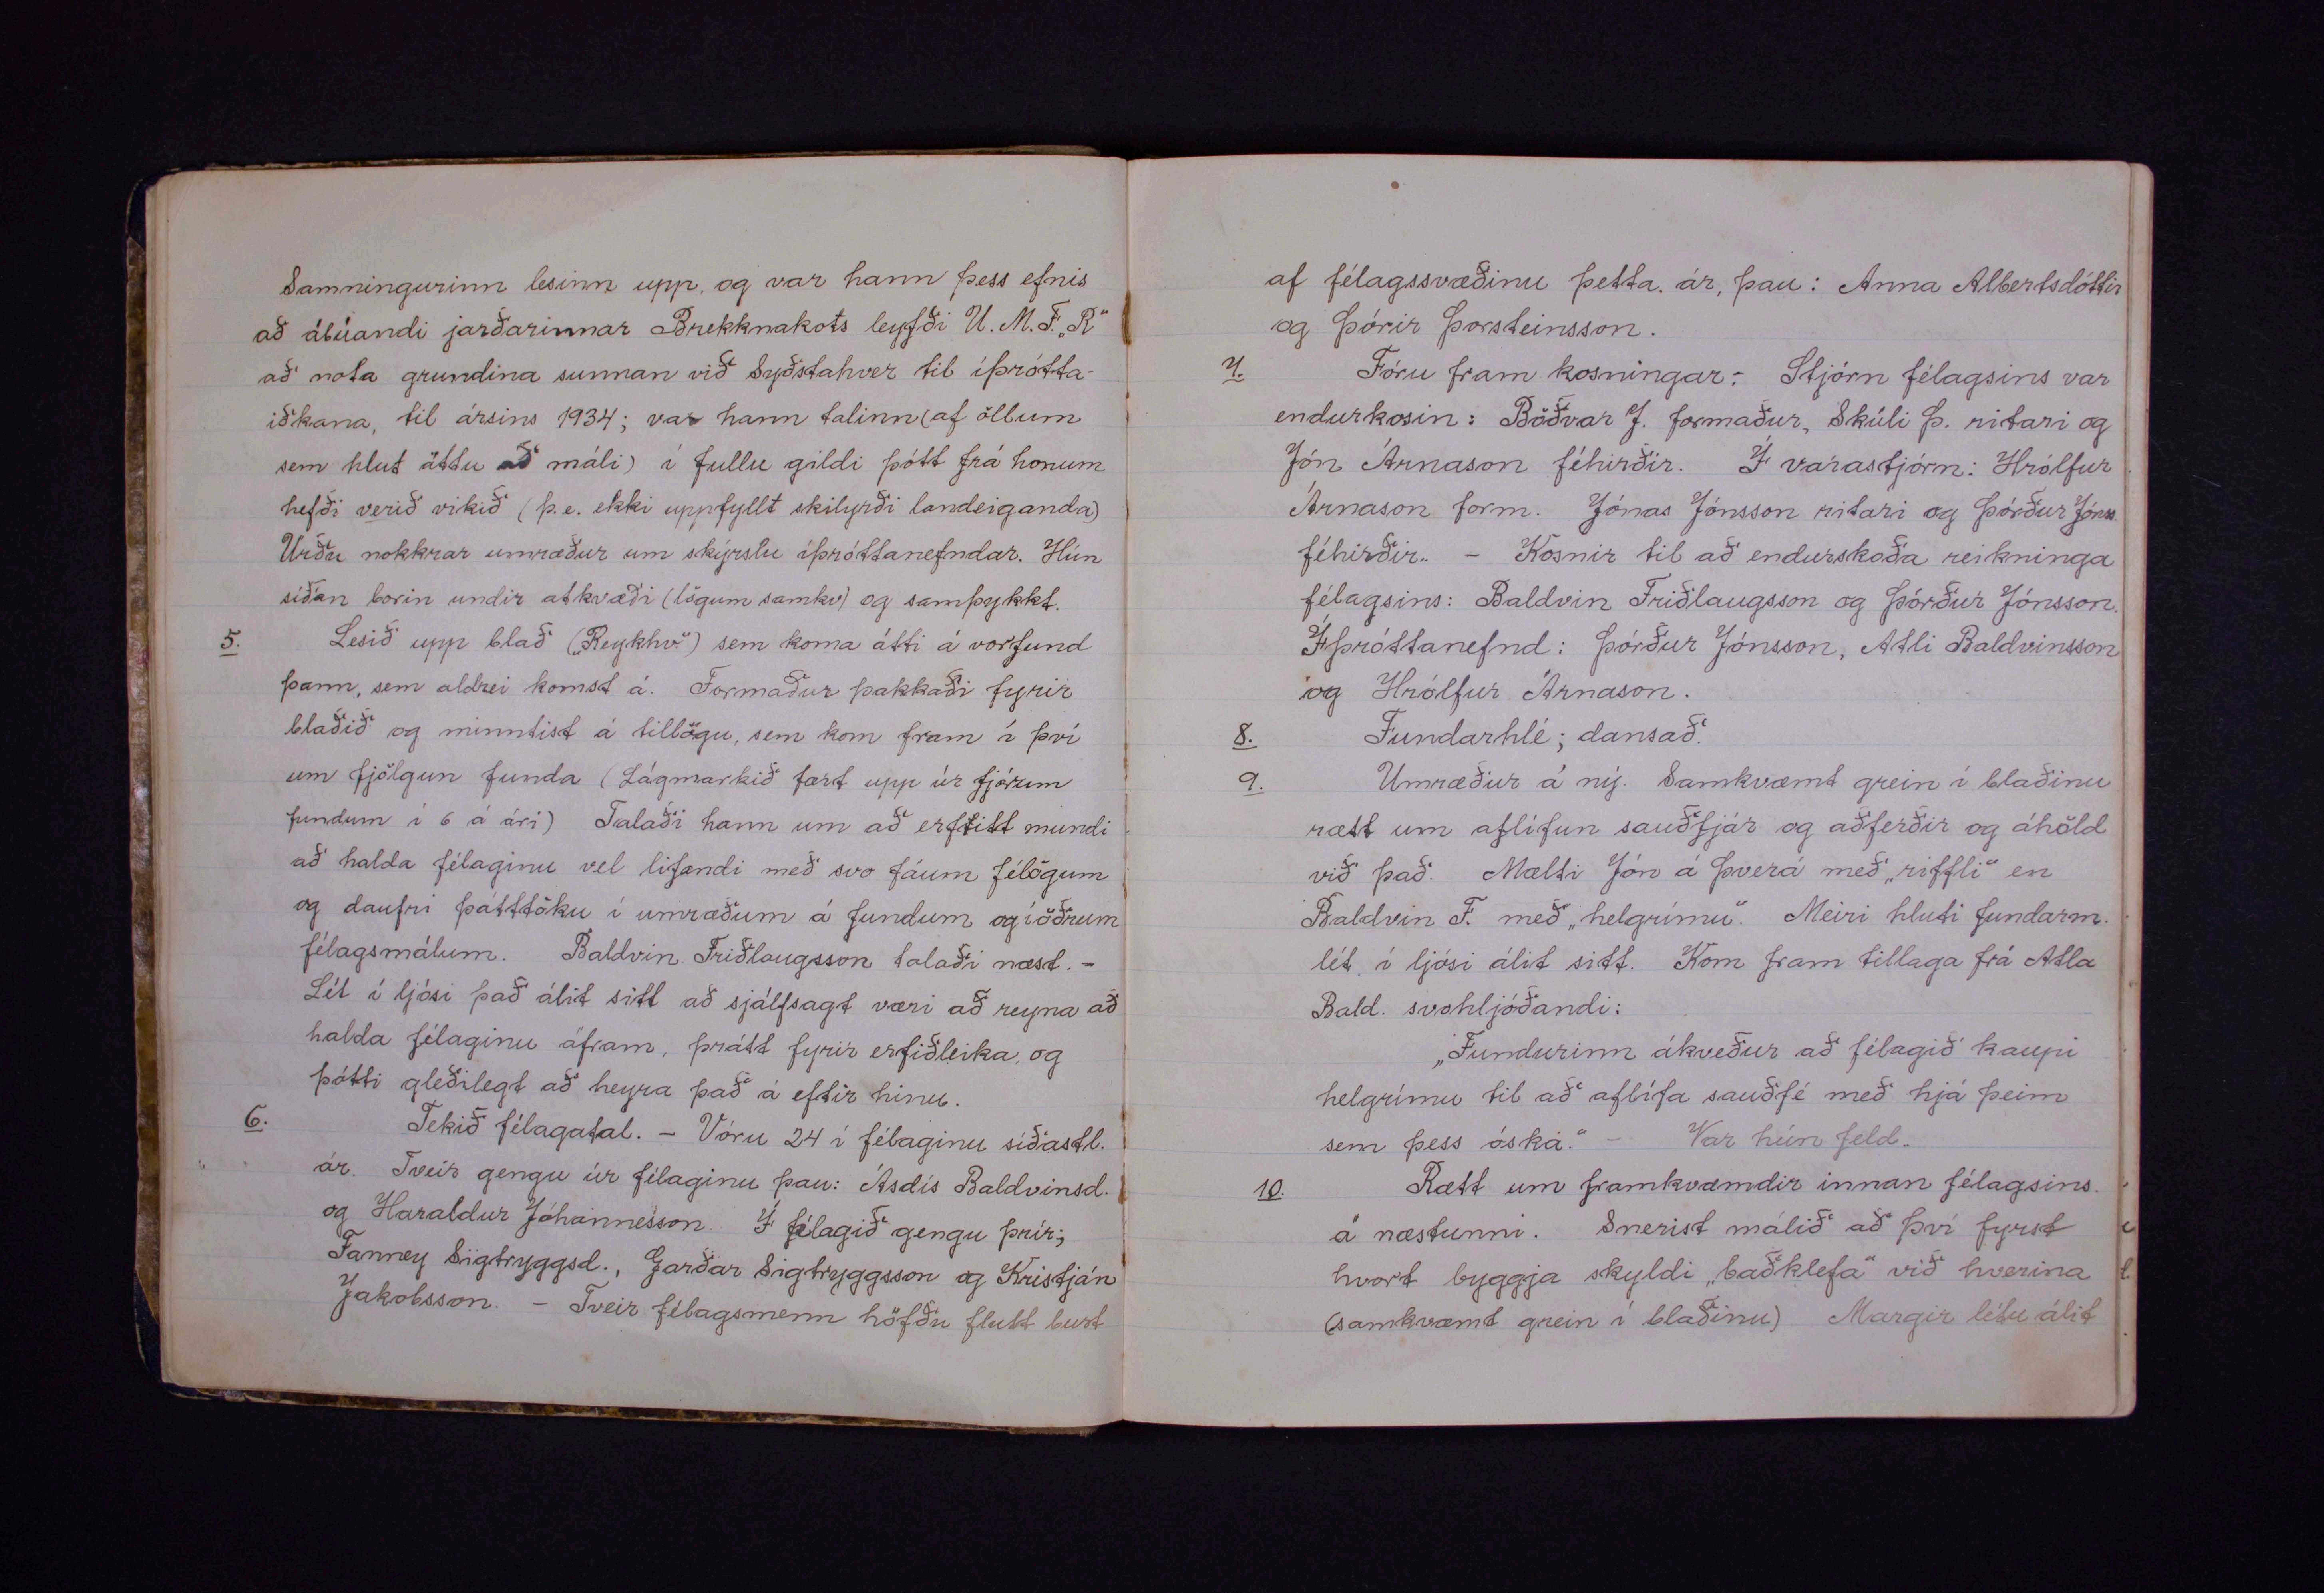 Samningurinn lesinn upp, og var hann þess efnis
að ábúandi jarðarinnar Brekknakots leyfði U.M.F. „R“
að nota grundina sunnan við Syðstahver til íþrótta-
iðkana, til ársins 1934; var hann talinn (af öllum
sem hlut áttu að máli) í fullu gildi þótt frá honum
hefði verið vikið (þ.e. ekki uppfyllt skilyrði landeiganda)
Urðu nokkrar umræður um skýrslu íþróttanefndar. Hún
síðan borin undir atkvæði (lögum samkv) og samþykkt.
5. Lesið upp blað („Reykhv.“) sem koma átti á vorfund
þann, sem aldrei komst á. Formaður þakkaði fyrir
blaðið og minntist á tillögu, sem kom fram í því
um fjölgun funda (Lágmarkið fært upp úr fjórum
fundum í 6 á ári) Talaði hann um að erfitt mundi
að halda félaginu vel lifandi með svo fáum félögum
og daufri þátttöku í umræðum á fundum og í öðrum
félagsmálum. Baldvin Friðlaugsson talaði næst. -
Lét í ljósi það álit sitt að sjálfsagt væri að reyna að
halda félaginu áfram, þrátt fyrir erfiðleika, og
þótti gleðilegt að heyra það á eftir hinu.
6. Tekið félagatal. - Vóru 24 í félaginu síðastl.
ár. Tveir gengu úr félaginu þau: Ásdís Baldvinsd.
og Haraldur Jóhannesson. Í félagið gengu þrír;
Fanney Sigtryggsd., Garðar Sigtryggsson og Kristján
Jakobsson. - Tveir félagsmenn höfðu flutt burt
af félagssvæðinu þetta ár, þau: Anna Albertsdóttir
og Þórir Þorsteinsson.
7. Fóru fram kosningar: Stjórn félagsins var
endurkosin: Böðvar J. formaður, Skúli Þ. ritari og
Jón Árnason féhirðir. Í varastjórn: Hrólfur
Árnason form. Jónas Jónsson ritari og Þórður Jónss.
féhirðir. - Kosnir til að endurskoða reikninga
félagsins: Baldvin Friðlaugsson og Þórður Jónsson.
Íþróttanefnd: Þórður Jónsson, Atli Baldvinsson
og Hrólfur Árnason.
8. Fundarhlé; dansað.
9. Umræður á ný. Samkvæmt grein í blaðinu
rætt um aflífun sauðfjár og aðferðir og áhöld
við það. Mælti Jón á Þverá með „riffli“ en
Baldvin F. með „helgrímu“. Meiri hluti fundarm.
lét í ljósi álit sitt. Kom fram tillaga frá Atla
Bald. svohljóðandi:
„Fundurinn ákveður að félagið kaupi
helgrímu til að aflífa sauðfé með hjá þeim
sem þess óska.“ - Var hún feld.
10. Rætt um framkvæmdir innan félagsins.
á næstunni. Snerist málið að því fyrst
hvort byggja skyldi „baðklefa“ við hverina
(samkvæmt grein í blaðinu) Margir létu álit